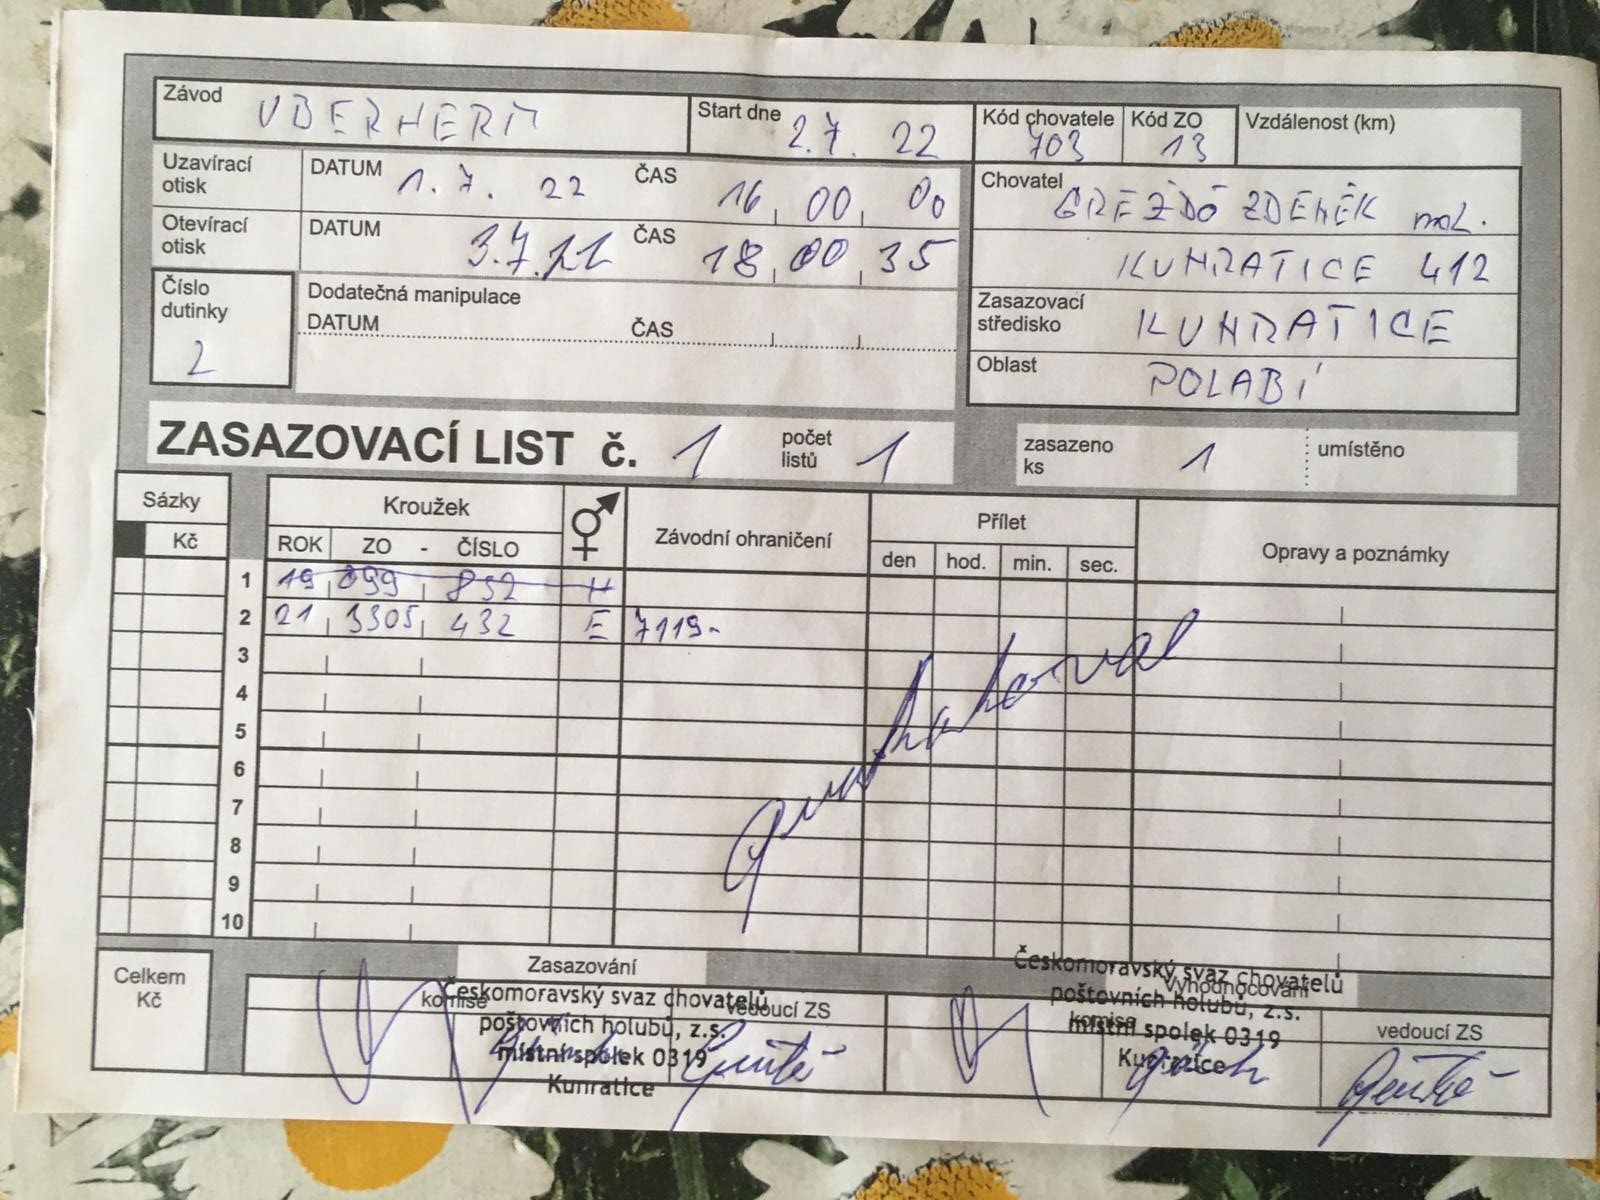 Závod VBERHERM Start dne 2.7. 22 Kód chovatele 703 Kód ZO 13 Vzdálenost (km)
Uzavírací otisk DATUM 1.7. 22 ČAS 16,00,00
Chovatel GREŽDO ZDENĚK ml.
Otevírací otisk DATUM 3.7.22 ČAS 18,00,35
KUNRATICE 412
Číslo dutinky 2
Dodatečná manipulace
DATUM ČAS
Zasazovací středisko KUNRATICE
Oblast POLABÍ
ZASAZOVACÍ LIST č. 1 počet listů 1 zasazeno ks 1 umístěno
Sázky Kroužek Závodní ohraničení Přílet Opravy a poznámky
Kč ROK ZO - ČÍSLO den hod. min. sec.
1 19 099 832 H
2 21 3305 432 E 7119-
3
4
5
6
7
8
9
10
Celkem Kč
Zasazování Vyhodnocování
komise vedoucí ZS komise vedoucí ZS
Českomoravský svaz chovatelů
poštovních holubů, z.s.
místní spolek 0319
Kunratice
Českomoravský svaz chovatelů
poštovních holubů, z.s.
místní spolek 0319
Kunratice